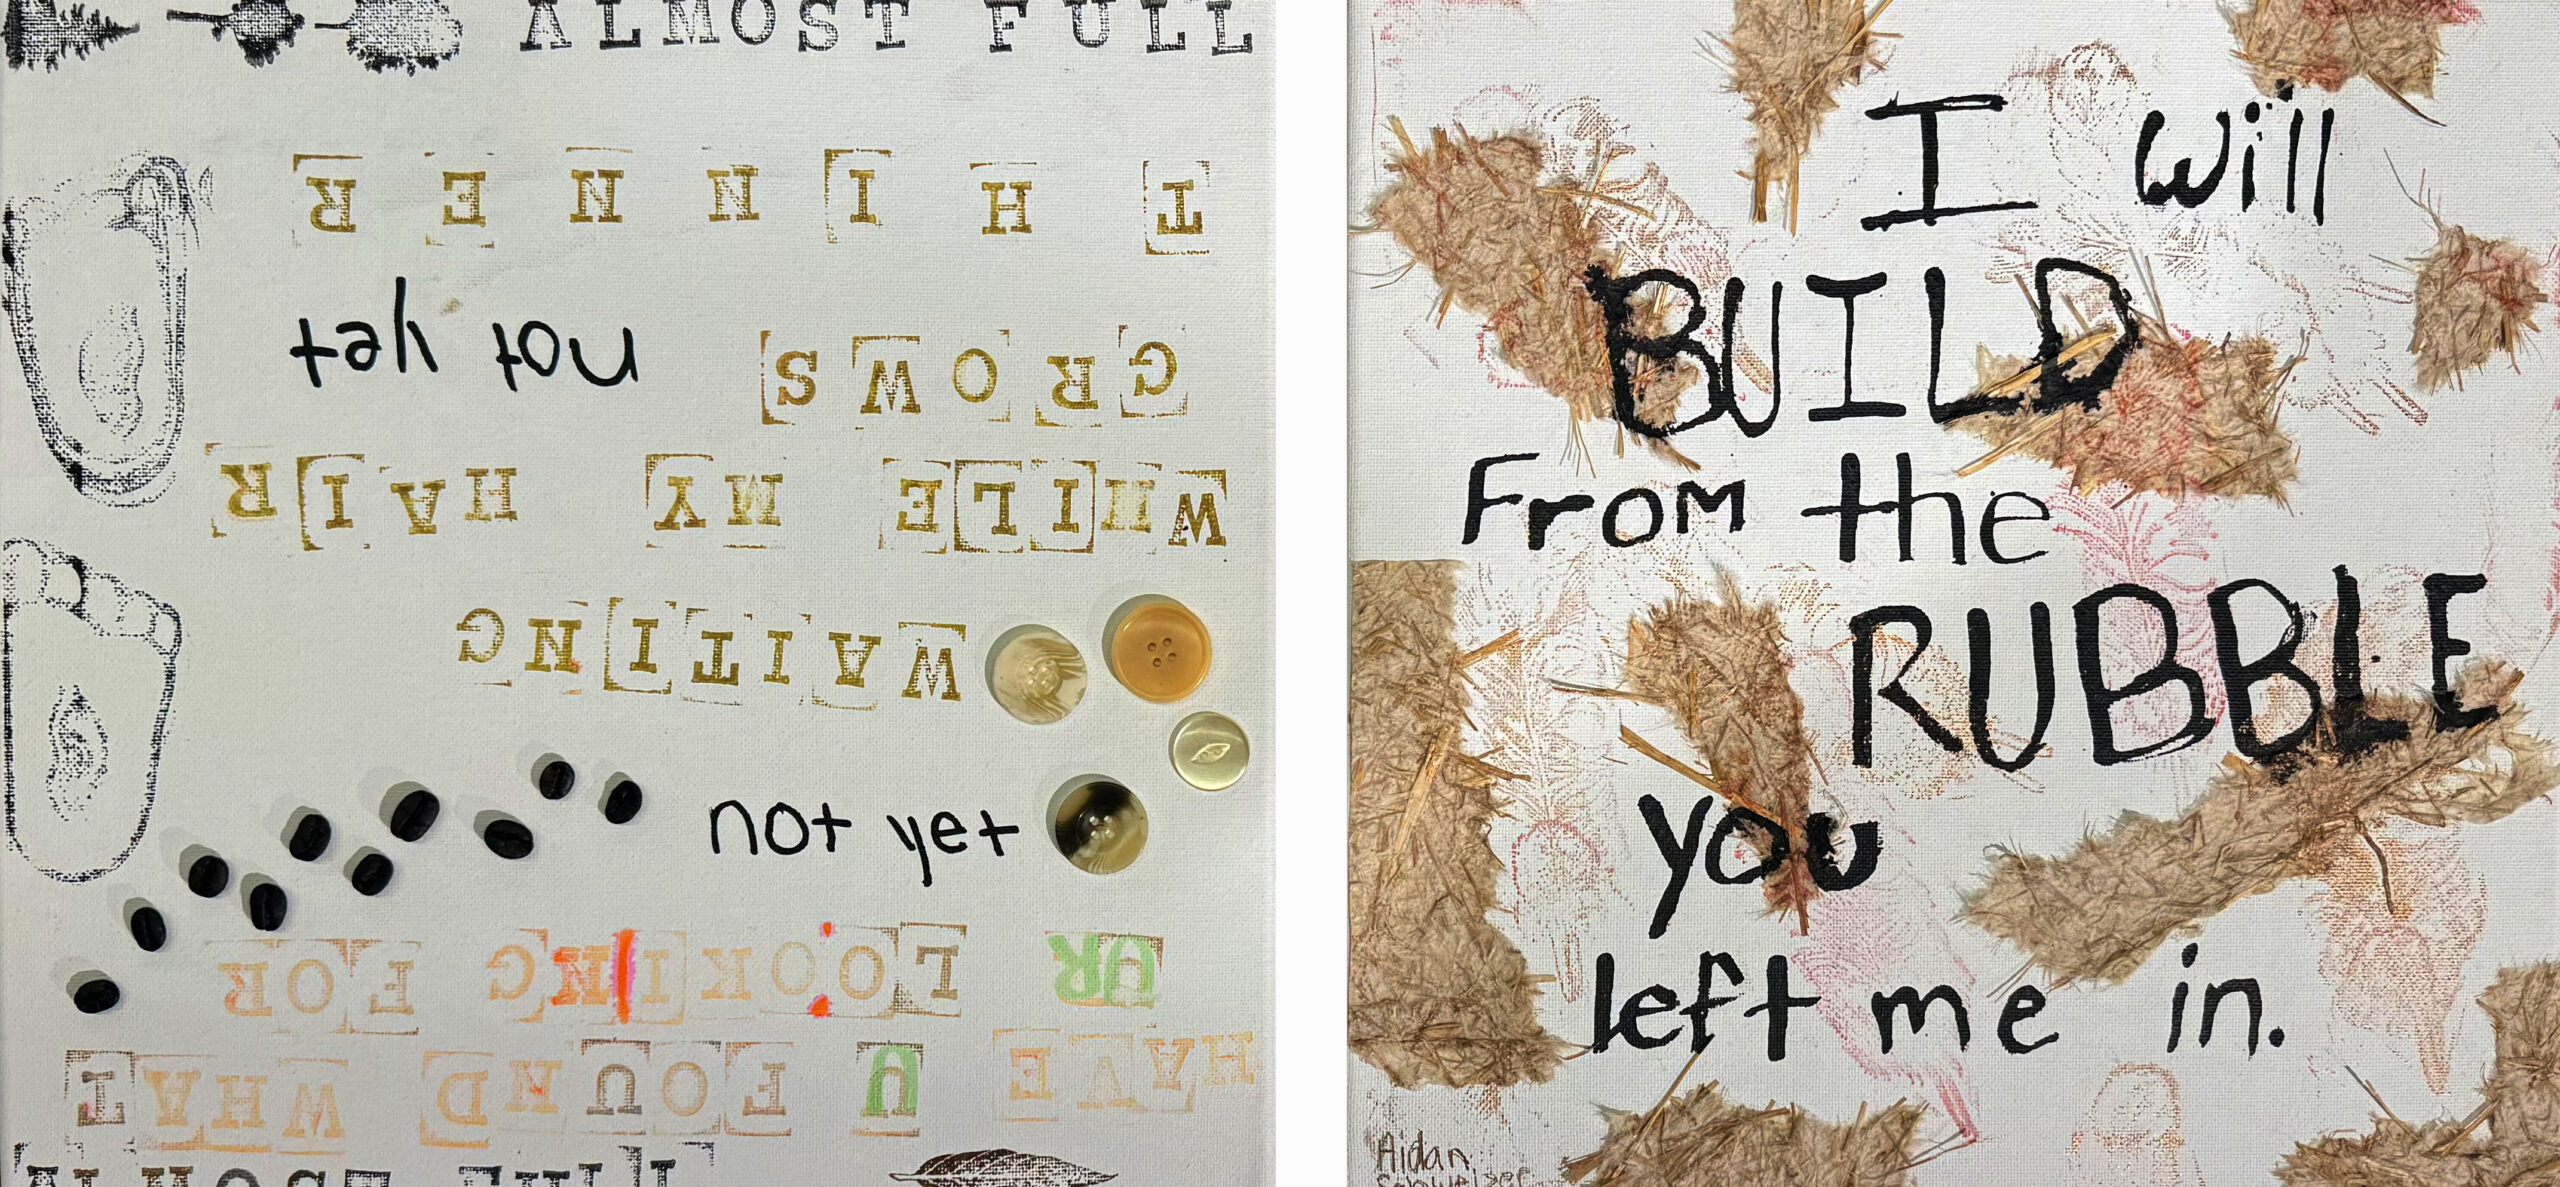 ALMOST FULL
HAVE U FOUND WHAT
UR LOOKING FOR
not yet
WAITING
WHILE MY HAIR
GROWS not yet
THINNER
I will
BUILD
From the
RUBBLE
you
left me in.
Aidan